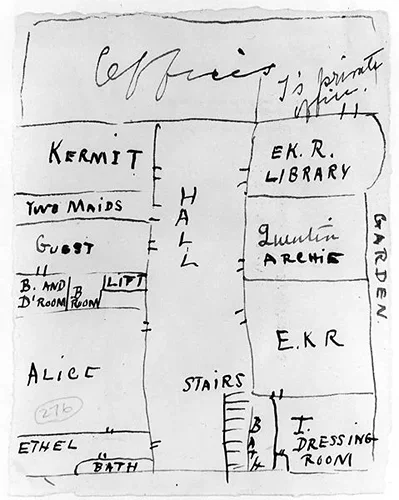 Offices
T's private
office.
KERMIT
E.K.R.
LIBRARY
TWO MAIDS
HALL
GUEST
Quentin
ARCHIE
GARDEN
B. AND
D'ROOM
B
ROOM
LIFT
E.K.R
ALICE
STAIRS
276
BATH
T.
DRESSING
ROOM
ETHEL
BATH